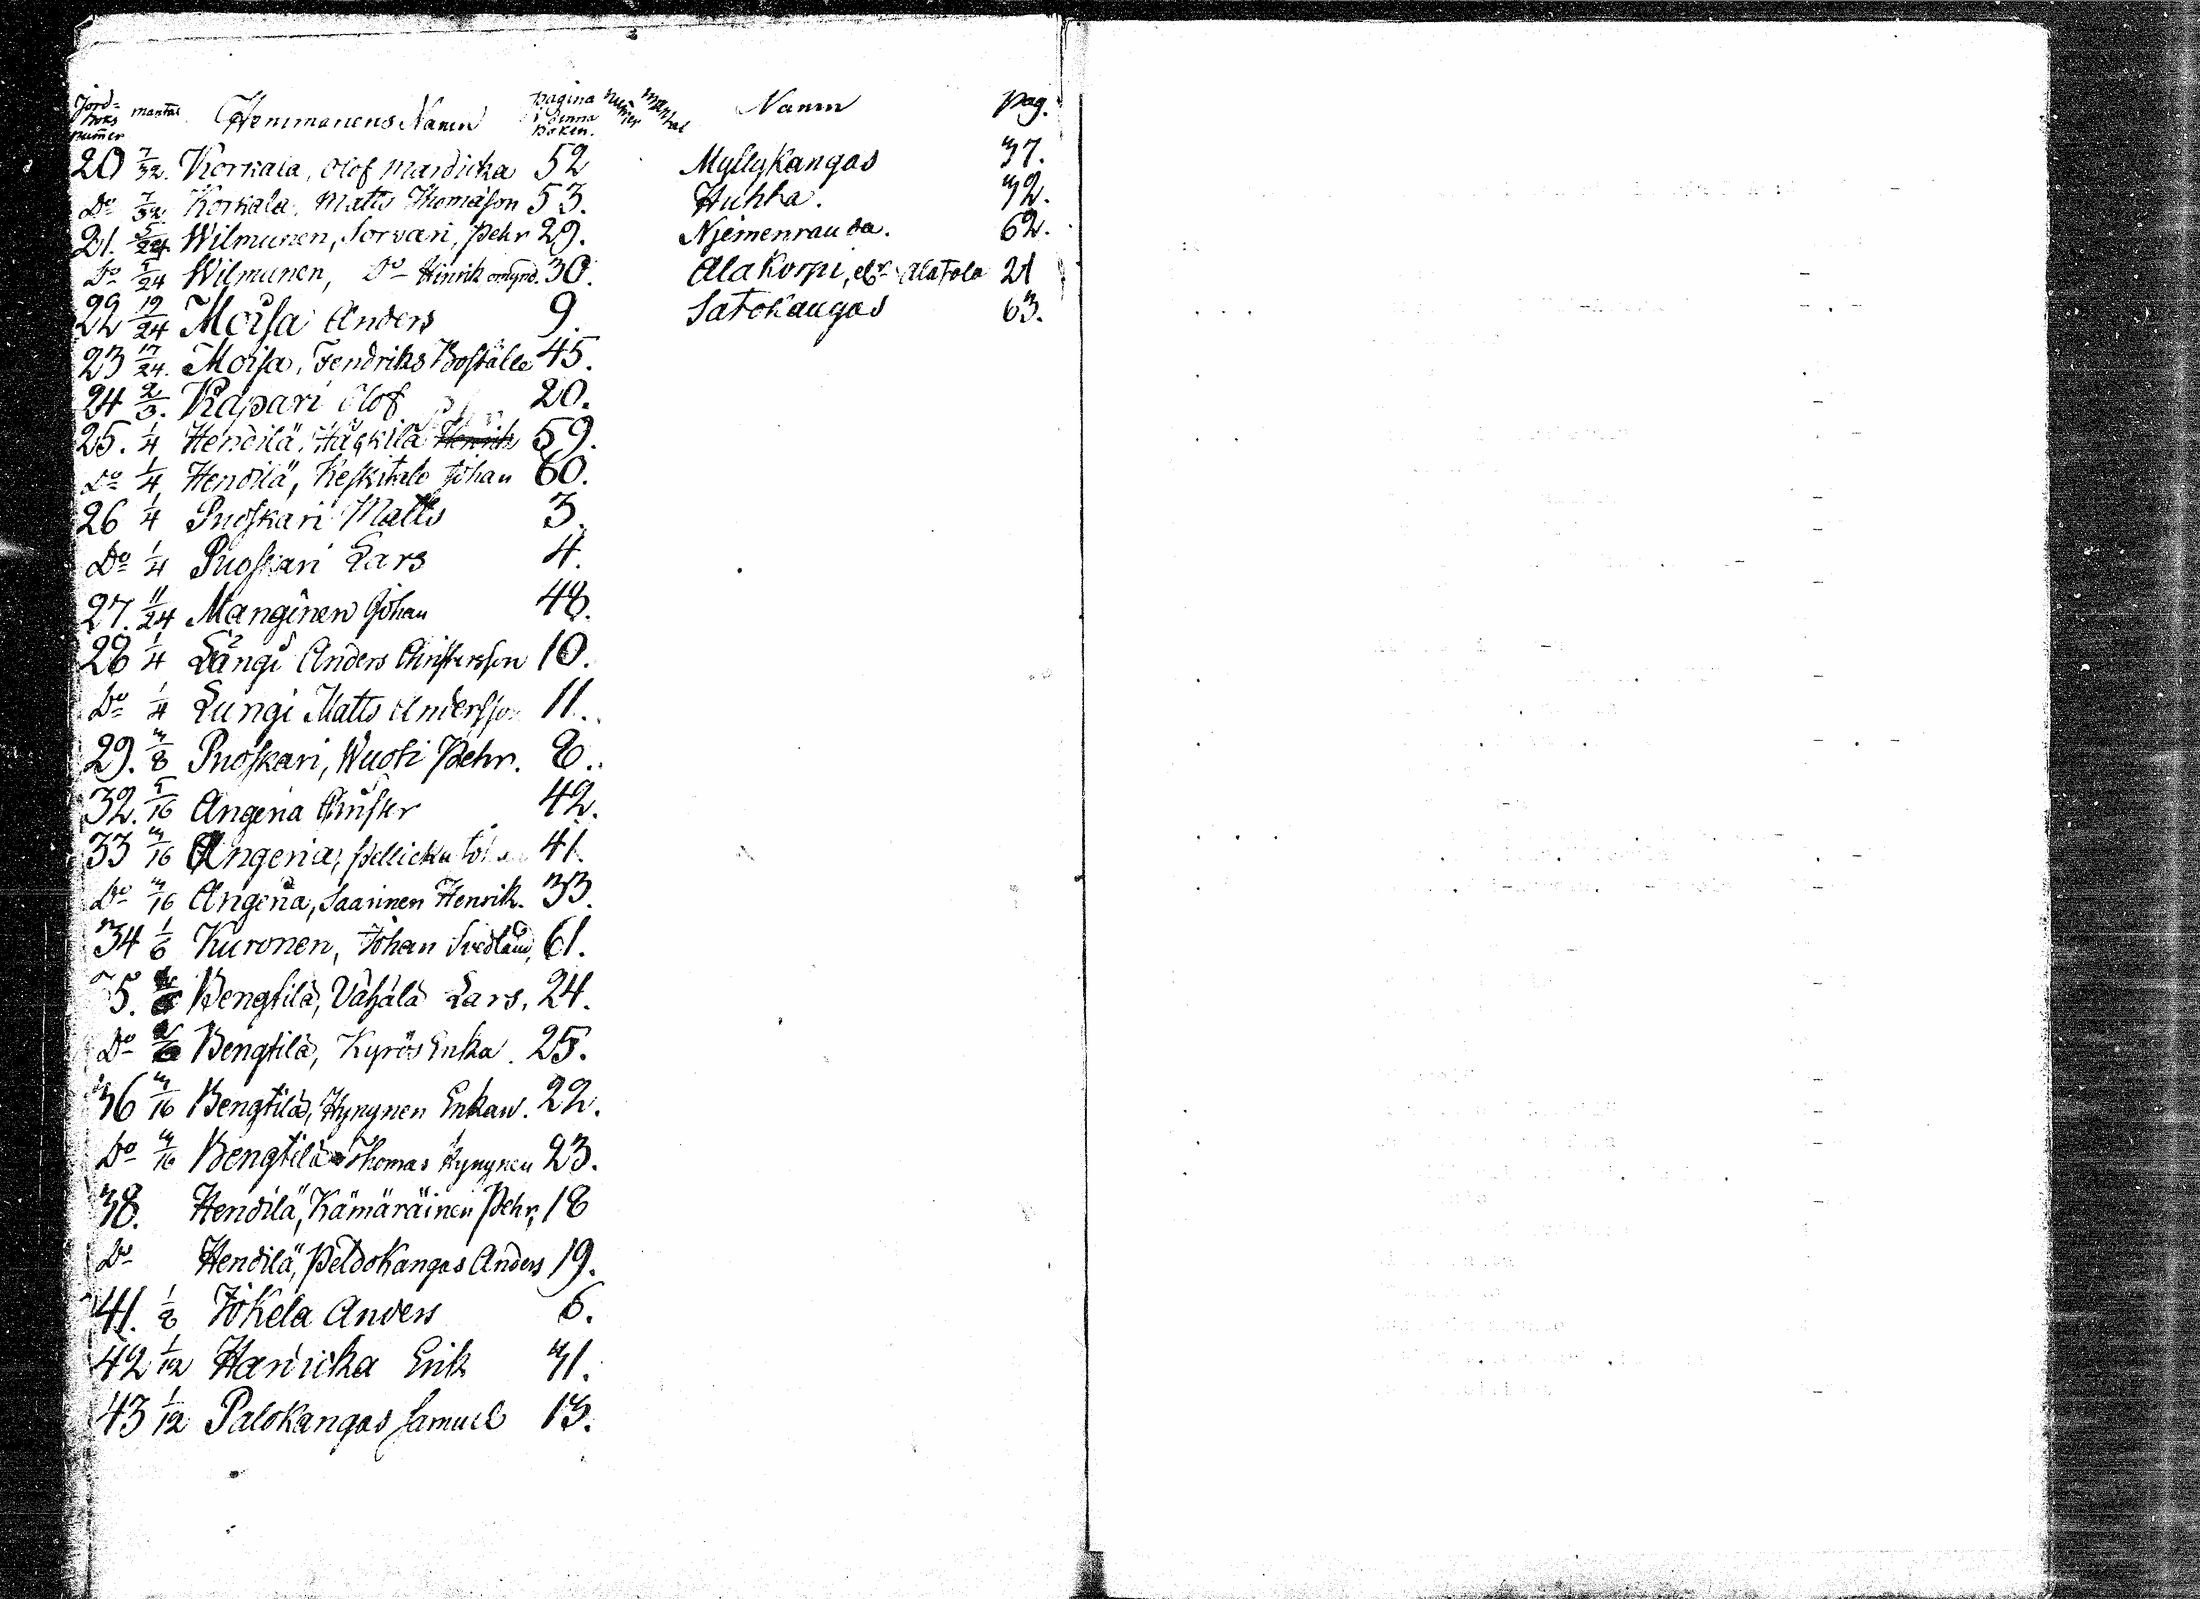 Jord-boks numer mantal Hemmanens Namn pagina i denna Boken. numer mantal Namn pag.
20 7/32. Korkala, Olof Mardicka 52 Myllykangas 37.
Do 7/32. Korkala, Matts Thomasson 53. Huhta. 32.
21. 5/24 Wilmunen, Sorvari, Pehr 29. Njemenrauda. 62.
Do 5/24 Wilmunen, Do Hinrik omynd. 30. Alakorpi, elr Alatalo 21
22 19/24 Moisa Anders 9. Satokangas 63.
23 17/24. Moisa, Fendriks Boställe 45.
24 2/3. Kapari Olof 20.
25. 1/4 Hendilä, Henrik 59.
Do 1/4 Hendilä, Keskitalo Johan 60.
26 1/4 Puoskari Matts 3.
Do 1/4 Puoskari Lars 4.
27. 11/24 Manginen Johan 48.
28 1/4 Längi Anders Christersson 10.
Do 1/4 Längi Matts Andersson 11.
29. 3/8 Puoskari, Wuoti Pehr. 8.
32. 5/16 Angeria Christer 42.
33 3/16 Angeria, Pellicka Joh 41.
Do 3/16 Angeria, Saarinen Henrik. 33.
34 1/6 Kuronen, Johan Svedlund, 61.
35. Bengtilä, Vähälä Lars. 24.
Do Bengtilä, Kyrös Enka. 25.
36 3/16 Bengtilä, Hyrynen Enkan. 22.
Do 3/16 Bengtilä Thomas Hyrynen 23.
38. Hendilä, Kämäräinen Pehr, 18
Do Hendilä, Peldokangas Anders 19.
41. 1/8 Jokela Anders 6.
42 1/12 Hardicka Erik 31.
43 1/12 Palokangas Samuel 13.